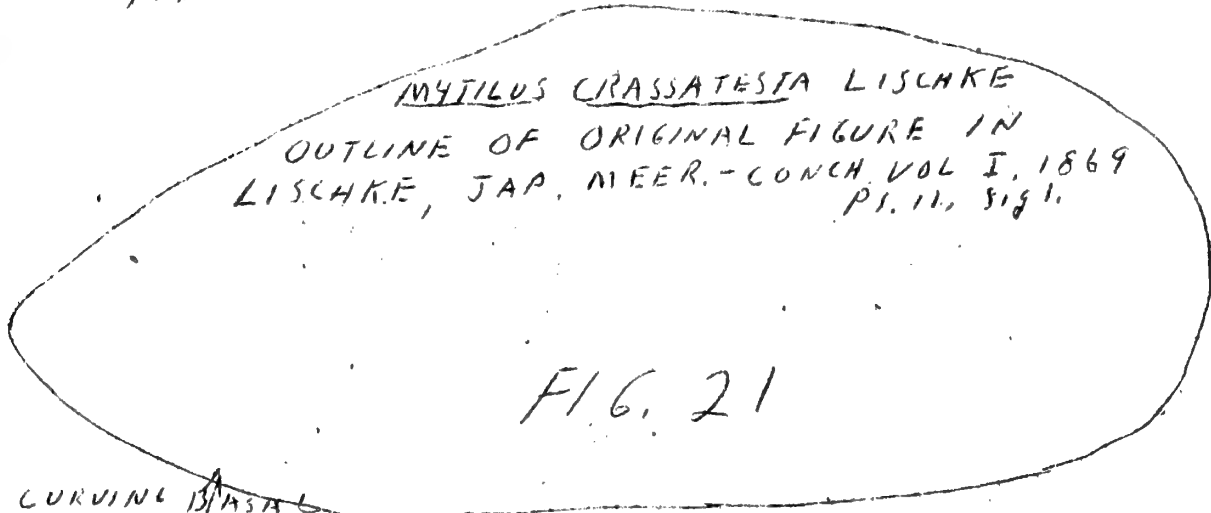 MYTILUS CRASSATESTA LISCHKE
OUTLINE OF ORIGINAL FIGURE IN
LISCHKE, JAP. MEER.-CONCH VOL I, 1869
Pl. 11, fig 1.
FIG. 21
CURVING BASAL